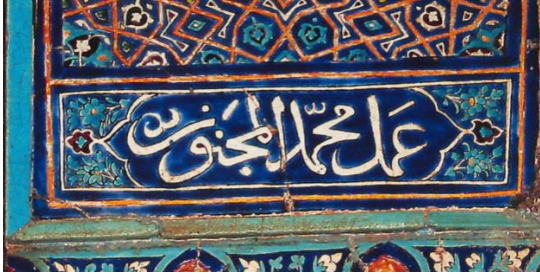 عمل محمد المجنون